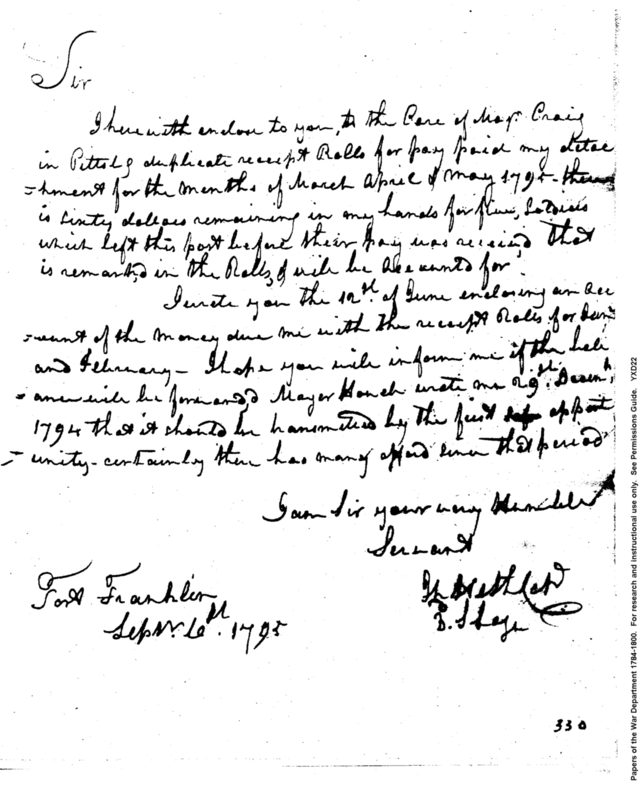 Sir
I herewith enclose to you, to the Care of Majr. Craig
in Pittsbg duplicate receipt Rolls for pay paid my detac
=hment for the months of March April & May 1795 - there
is Sixty dollars remaining in my hands for five, Soldiers
which left this post before their pay was received, that
is remarked in the Rolls, & will be Accounted for.
I wrote you the 12th. of June enclosing an Acc
=ount of the money due me with the receipt Rolls for
and February - I hope you will inform me if the bala
=nce will be forwarded Mayor wrote me 29th. Decemr.
1794 that it should be transmitted by the first opport
=unity - certainly there has many since that period
I am Sir your very Humble
Servant
Fort Franklin
Sepr. 1795
330
Papers of the War Department 1784-1800. For research and instructional use only. See Permissions Guide. YXD22